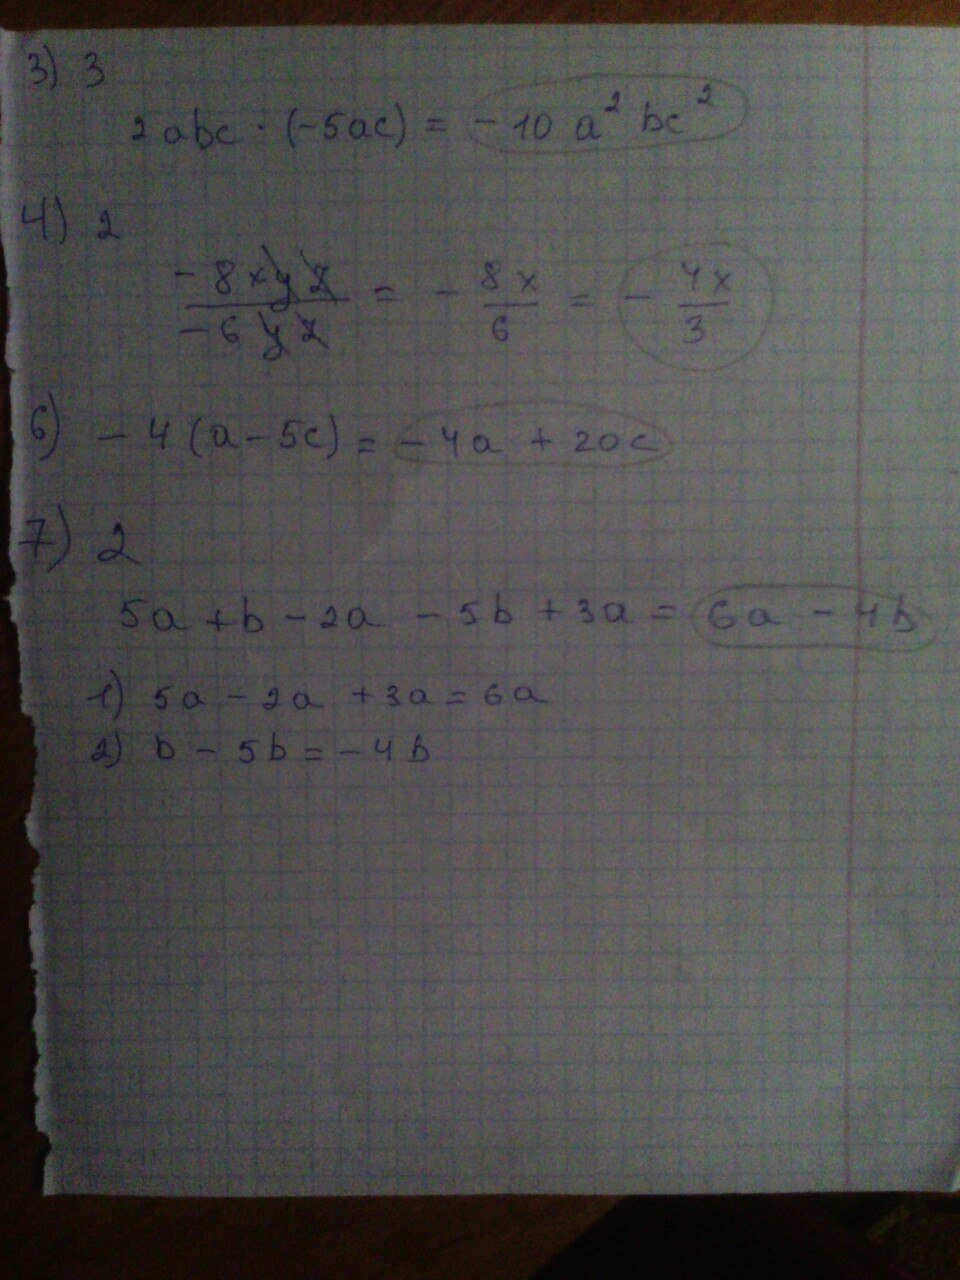 3) 3
2abc · (-5ac) = -10 a² bc²
4) 2
-8xyz / -6yz = - 8x / 6 = - 4x / 3
6) -4(a-5c) = -4a + 20c
7) 2
5a + b - 2a - 5b + 3a = 6a - 4b
1) 5a - 2a + 3a = 6a
2) b - 5b = -4b